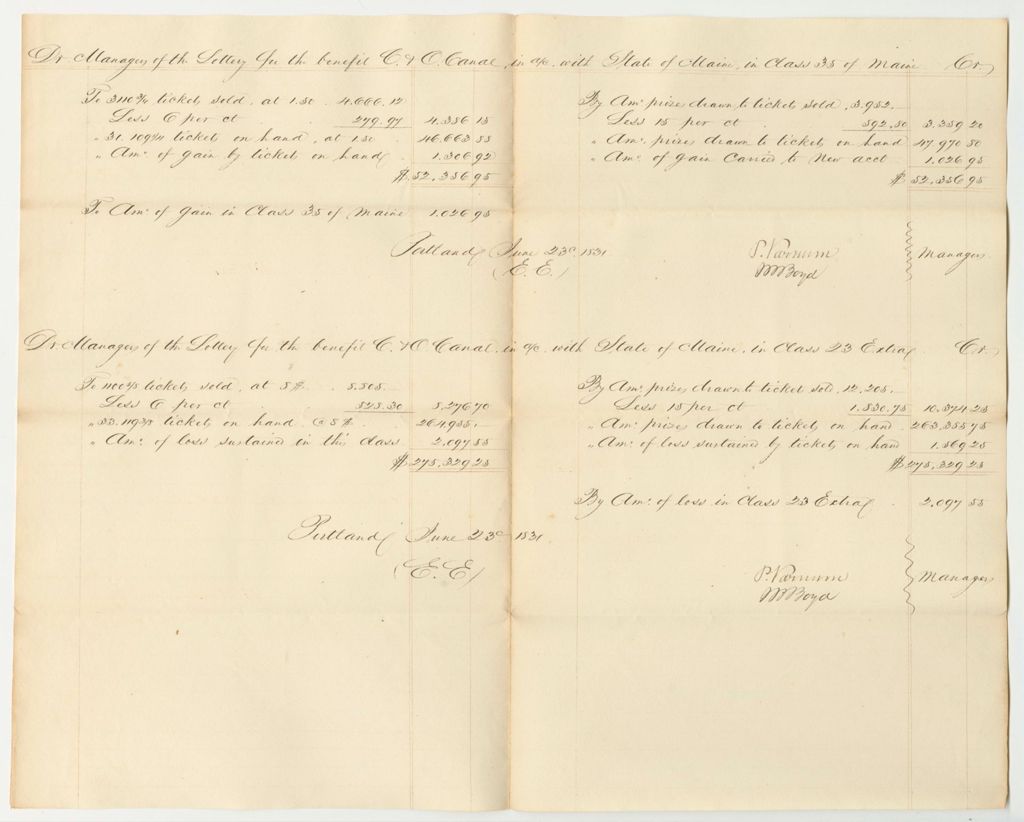 Dr Managers of the Lottery for the benefit C. & O. Canal, in a/c. with State of Maine, in Class 35 of Maine Cr
To 3110 3/4 tickets sold, at 1.50 . 4.666.12
Less 6 per ct . 279.97 4.386 15
" 31.109 1/4 tickets on hand, at 1.50 46.663 88
" Amt. of gain by tickets on hand 1.306 92
$ 52.356 95
By Amt. prizes drawn to tickets sold, 3.952.
Less 15 per ct . 592.80 3.359 20
" Amt. prizes drawn to tickets on hand 47.970 80
" Amt. of gain Carried to New acct . 1.026 95
$ 52.356 95
To Amt. of gain in Class 35 of Maine 1.026 95
Portland June 23d 1831
(E. E.)
P. Varnum
W Boyd
Managers
Dr Managers of the Lottery for the benefit C. & O Canal, in a/c. with State of Maine, in Class 23 Extra Cr.
To 1100 5/8 tickets sold, at 8$ . 8.805.
Less 6 per ct . 528.30 8,276 70
" 33.119 3/8 tickets on hand. @ 8$. 264.955.
" Amt. of loss sustained in this class 2.097 55
$ 275,329 25
By Amt. prizes drawn to ticket sold, 12.205.
Less 15 per ct . 1.830.75 10.374 25
" Amt. prizes drawn to tickets on hand . 263.385 75
" Amt. of loss sustained by tickets on hand 1.569 25
$ 275,329 25
By Amt. of loss in Class 23 Extra . 2.097 55
Portland June 23d 1831
(E. E)
P. Varnum
W Boyd
Managers